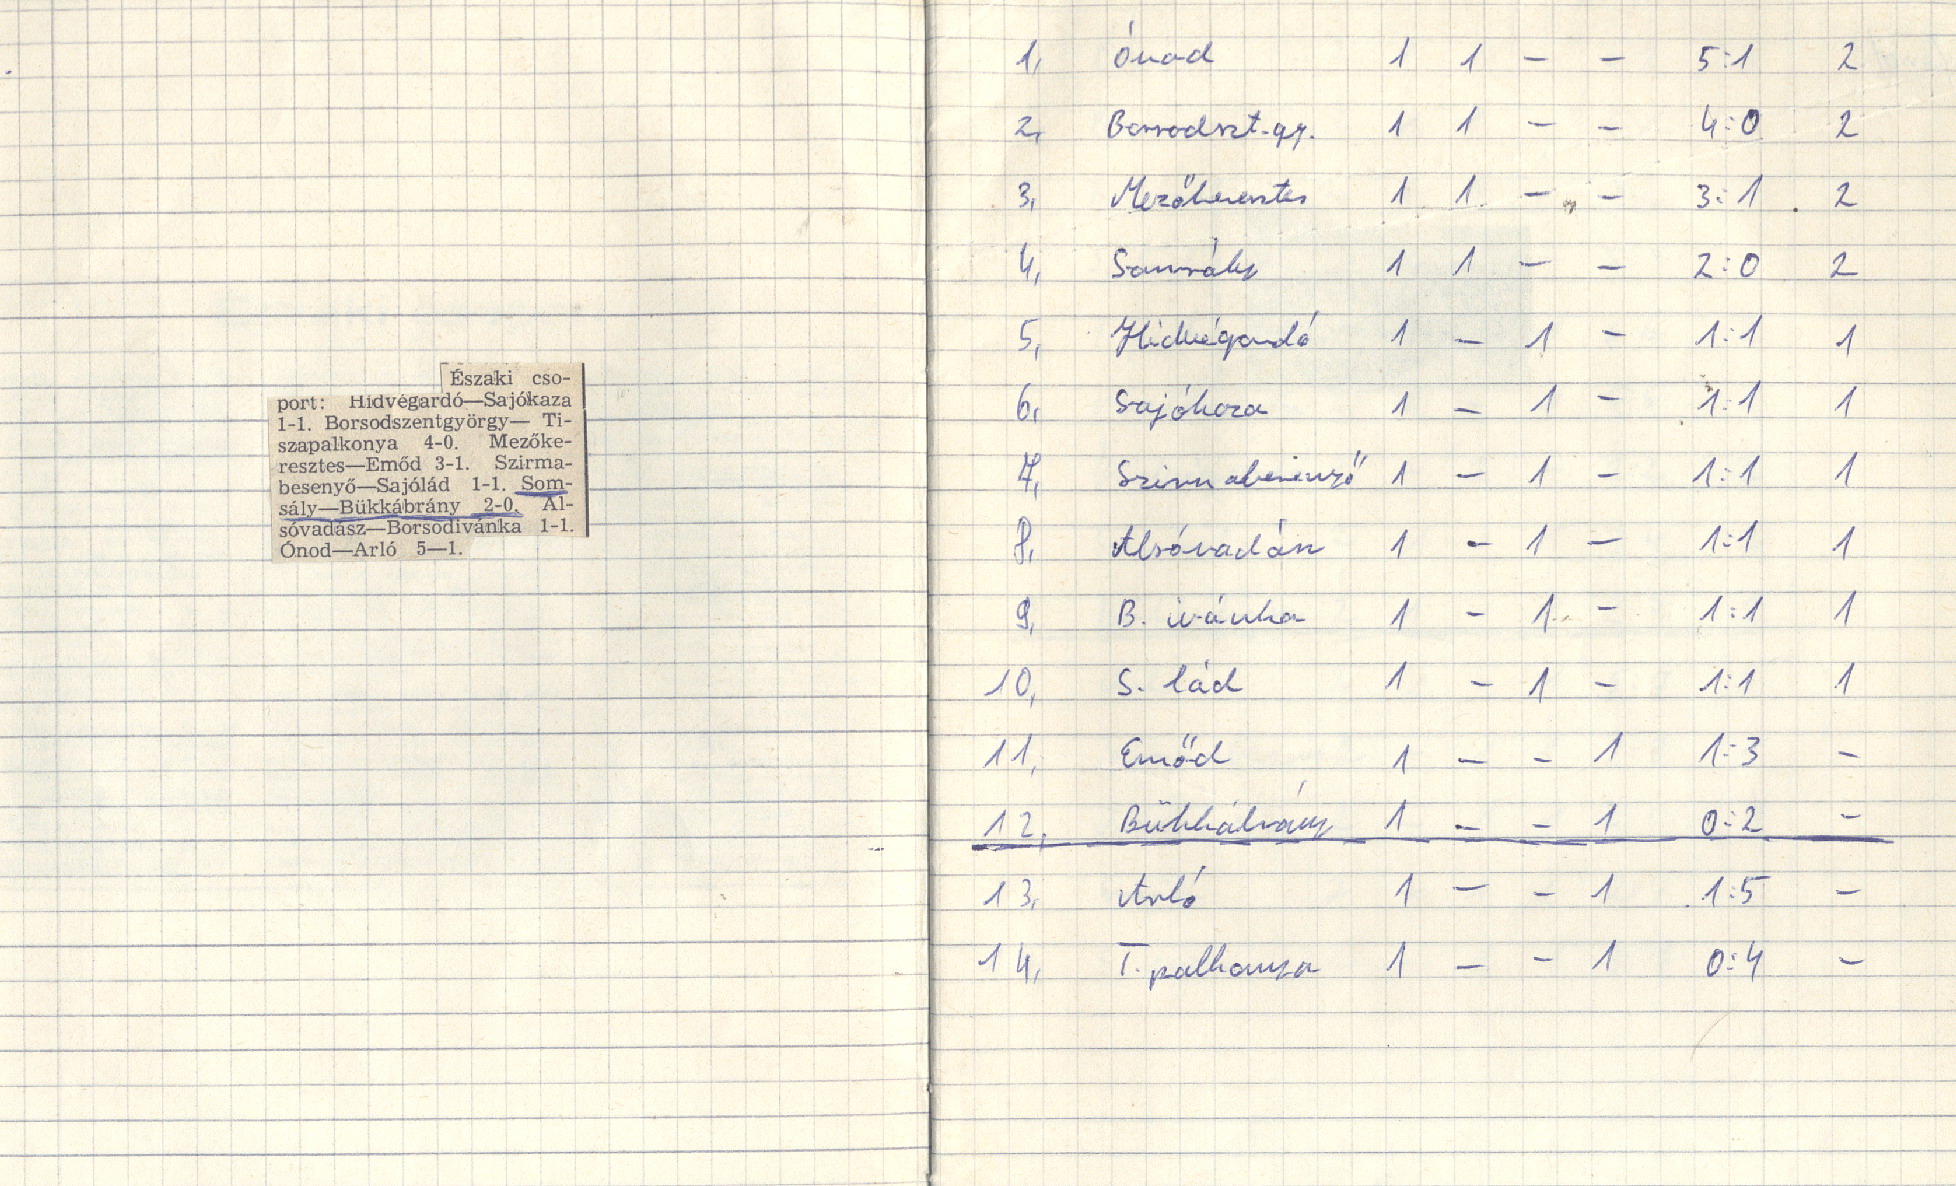 Északi cso-
port: Hidvégardó—Sajókaza
1-1. Borsodszentgyörgy— Ti-
szapalkonya 4-0. Mezőke-
resztes—Emőd 3-1. Szirma-
besenyő—Sajólád 1-1. Som-
sály—Bükkábrány 2-0. Al-
sóvadász—Borsodivánka 1-1.
Ónod—Arló 5—1.
1, Ónod 1 1 – – 5:1 2
2, Borsodszt.gy. 1 1 – – 4:0 2
3, Mezőkeresztes 1 1 – – 3:1 2
4, Somsály 1 1 – – 2:0 2
5, Hidvégardó 1 – 1 – 1:1 1
6, Sajókaza 1 – 1 – 1:1 1
7, Szirmabesenyő 1 – 1 – 1:1 1
8, Alsóvadász 1 – 1 – 1:1 1
9, B. ivánka 1 – 1 – 1:1 1
10, S. lád 1 – 1 – 1:1 1
11, Emőd 1 – – 1 1:3 –
12, Bükkábrány 1 – – 1 0:2 –
13, Arló 1 – – 1 1:5 –
14, T. palkonya 1 – – 1 0:4 –